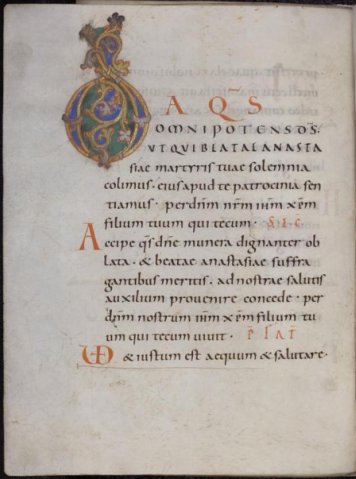 DA Q̄S
OMNIPOTENS D̄S·
UT QUI BEATAE ANASTA
siae martyris tuae solemnia
colimus· eius apud te patrocinia sen
tiamus· per dn̄m nr̄m ihm̄ xp̄m
filium tuum qui tecum·
Accipe qs̄ dn̄e munera dignanter ob
lata· & beatae anastasiae suffra
gantibus meritis· ad nostrae salutis
auxilium prouenire concede· per
dn̄m nostrum ihm̄ xp̄m filium tu
um qui tecum uiuit·
UD & iustum est aequum & salutare·